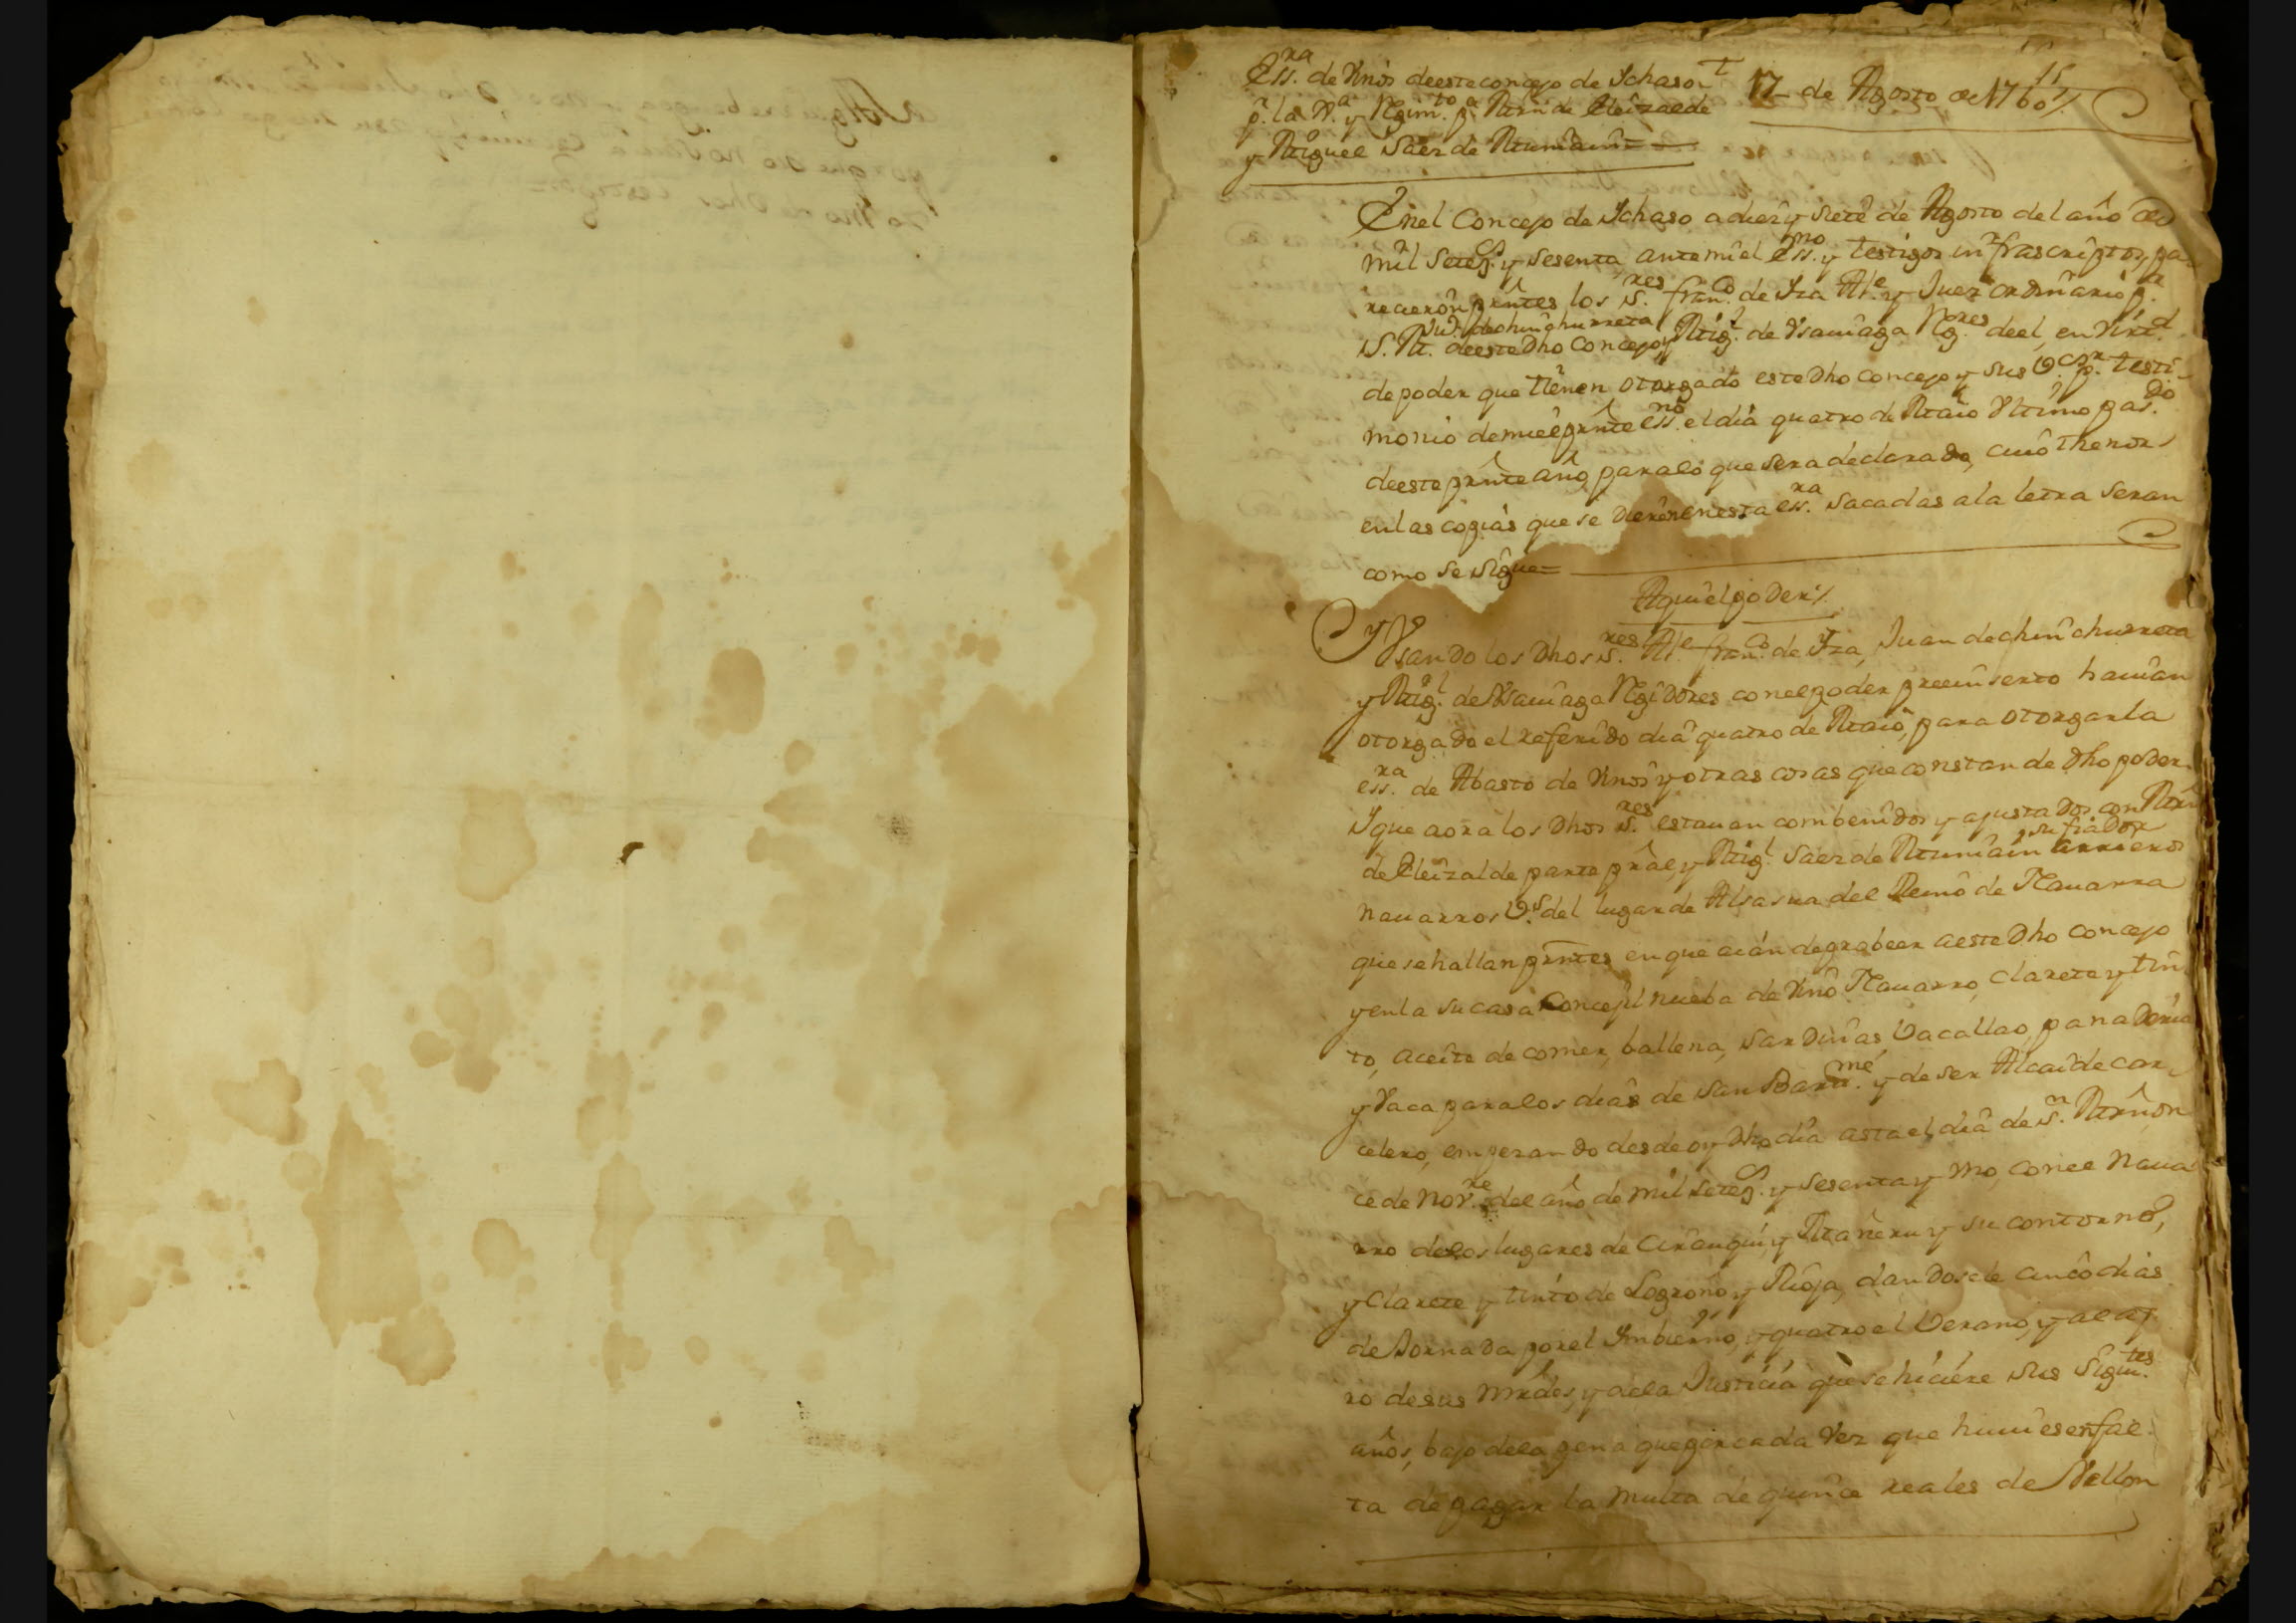 Ess.ra de Vinos deeste concejo de Ychaso
p.r la V.a y Regim.to p.a Mrn de Eleizalde
y Miguel Saez de Muniain =
17 de Agosto de 1760 /.
15
En el Concejo de Ychaso a diez y siete de Agosto del año de
mil setez.s y sesenta ante mi el Ess.no y testigos infrascriptos, pa-
recieron prntes los S.res fran.co de Yza Al.e y Juez ordinario p.r
S. M. deeste Dho Concejo, Ju.n de chinchurreta y Mig.l de Vsauiaga Reg.res de el, en Virt.d
de poder que tienen otorgado este Dho concejo y sus V.os p.r testi-
monio de mi el prnte ess.no el dia quatro de Maio Vltimo pas.do
deeste prnte año, para lo que sera declarado, cuio thenor
en las copias que se dieren enesta ess.ra sacadas a la letra seran
como se sigue =
Aqui el poder /.
Y Vsando los Dhos S.res Al.e fran.co de Yza, Juan de chinchurreta
y Mig.l de Vsauiaga Regidores con el poder preeinserto hauian
otorgado el referido dia quatro de Maio, para otorgar la
ess.ra de Abasto de Vinos y otras cosas que constan de Dho poder
Y que aora los Dhos S.res estauan combenidos y ajustados con Mrn
de Eleizalde parte prâl, y Mig.l Saez de Munîain su fiador arrieros
nauarros V.s del lugar de Alsasua del Reino de Nauarra
que se hallan prntes en que aian de probeer a este Dho concejo
y en la su casa Concejil nueba de Vino Nauarro, clarete y tin-
to, aceite de comer, ballena, sardinas Vacallao, panaderia
y Vaca para los dias de San Barm.mé y de ser Alcaide car-
celero, empezando desde oy Dho dia asta el dia de S.n Mrn on-
ce de Nov.re del año de mil setez.s y sesenta y Vno, con el Naua
rro de los lugares de Cirauqui, y Mañeru y su contorno,
y Clarete y tinto de Logroño y Rioja, dandosele cinco dias
de Jornada por el Ymbierno, y quatro el Verano, y al ap.
ro de sus Mrdes, y de la Justicia que se hiciere sus siguien.tes
años, bajo de la pena que por cada Vez que huuiesen fal-
ta de pagar la multa de quince reales de Vellon